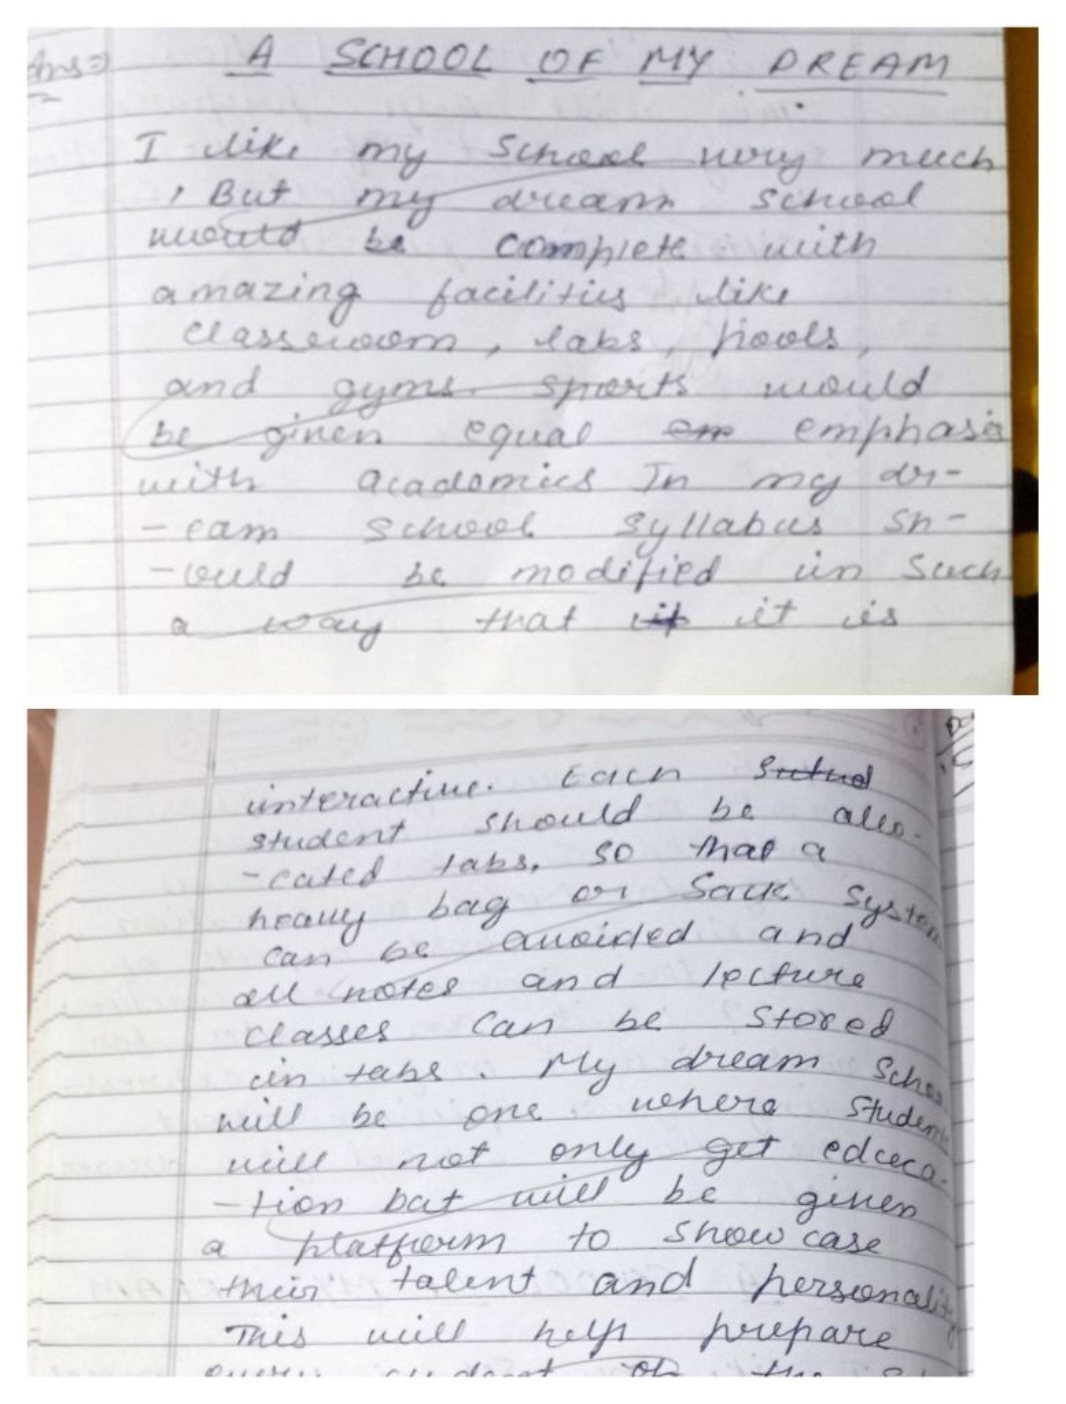 Ans⇒ A SCHOOL OF MY DREAM
I like my School very much
, But my dream school
would be complete with
amazing facilities like
classroom, labs, pools,
and gyms. sports would
be given equal emphasis
with academics In my dr-
-eam school syllabus sh-
-ould be modified in such
a way that it is
interactive. Each
student should be allo-
-cated tabs, so that a
heavy bag or Sack System
can be avoided and
all notes and lecture
classes can be stored
in tabs. My dream School
will be one, where Students
will not only get educa-
-tion but will be given
a platform to show case
their talent and personality
This will help prepare
every student of the